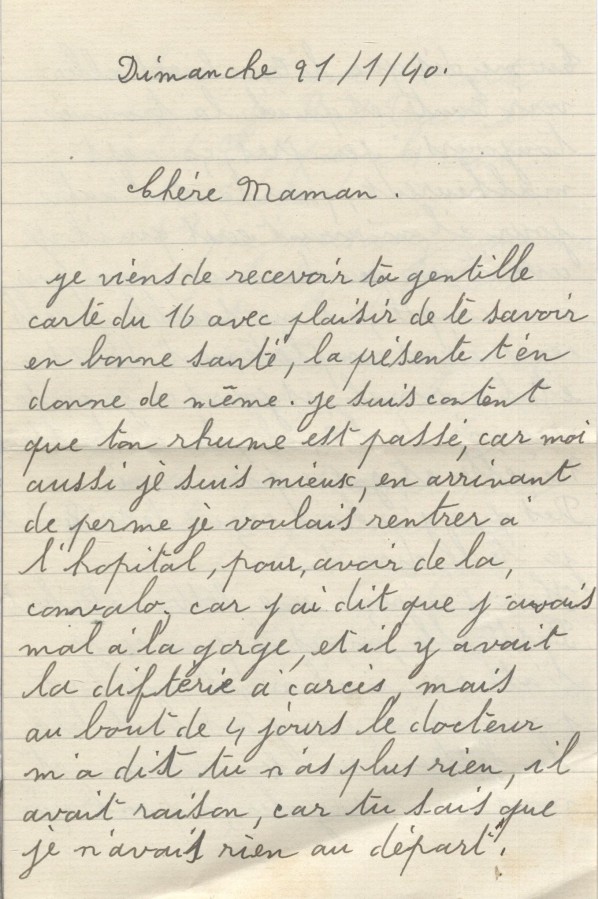 Dimanche 21/1/40.
Chére Maman.
je viens de recevoir ta gentille
carte du 16 avec plaisir de te savoir
en bonne santé, la présente t'én
donne de même. je suis content
que ton rhume est passé, car moi
aussi je suis mieux, en arrivant
de perme je voulais rentrer à
l'hopital, pour, avoir de la,
convalo, car j'ai dit que j'avais
mal à la gorge, et il y avait
la difterie a carcès, mais
au bout de 4 jours le docteur
m'a dit tu n'as plus rien, il
avait raison, car tu sais que
je n'avais rien au départ.